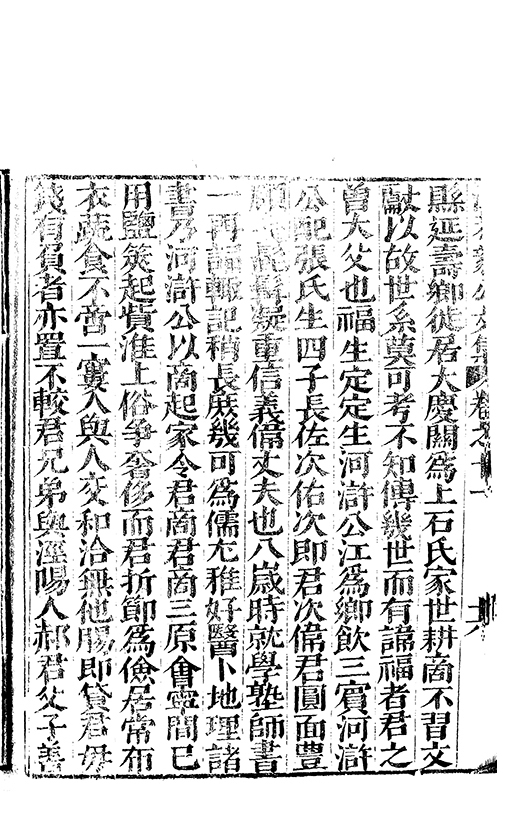 公文集 卷之十一 十六
縣延壽鄉徙居大慶關爲上石氏家世耕啇不習文
獻以故世系莫可考不知傳幾世而有諱福者君之
曾大父也福生定定生河滸公江爲鄉飲三賓河滸
公配張氏生四子長佐次佑次即君次偉君圓面豐
頤 髭髯凝重信義偹丈夫也八歲時就學塾師書
一再誦輙記稍長庶幾可爲儒尤雅好醫卜地理諸
書乃河滸公以啇起家令君啇君啇三原會寧間已
用鹽筴起貲淮上俗爭奢侈而君折節爲儉居常布
衣蔬食不啻一寠人與人交和洽無他腸即貸君毋
錢有負者亦置不較君兄弟與涇陽人郝君父子善